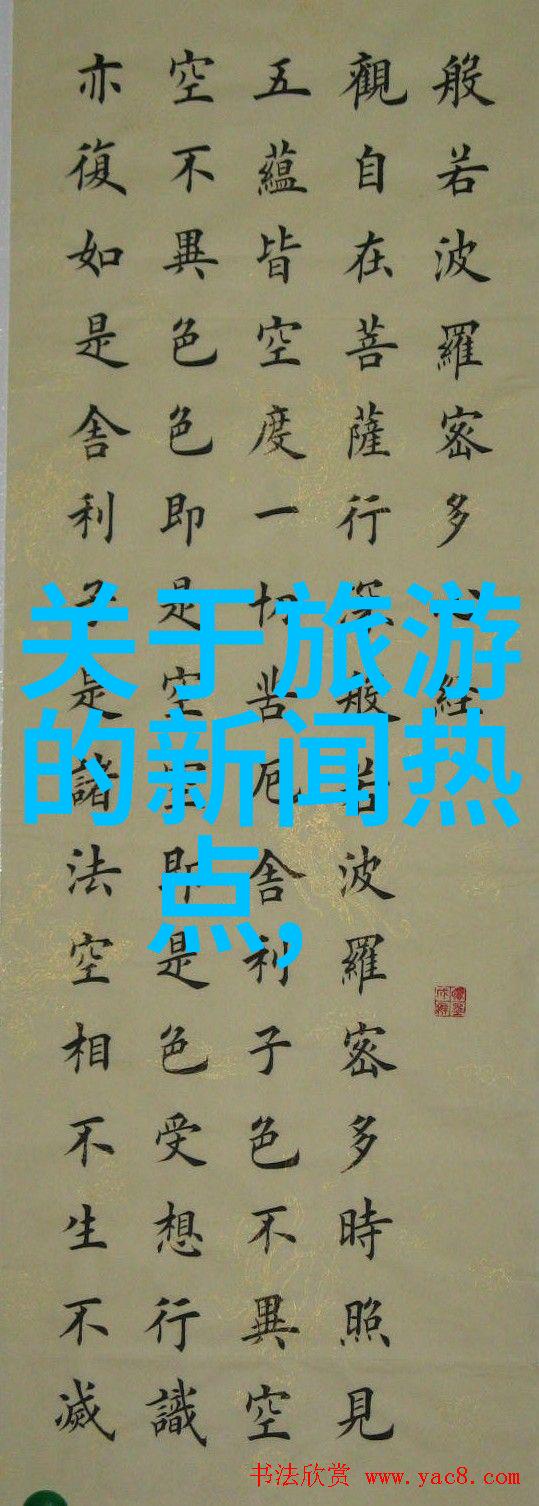 般若波羅密多心經
觀自在菩薩行深般若波羅密多時照見
五蘊皆空度一切苦厄舍利子色不異空
空不異色色即是空空即是色受想行識
亦復如是舍利子是諸法空相不生不滅
关于旅游
的新闻热
点,
书法欣赏 www.yac8.com